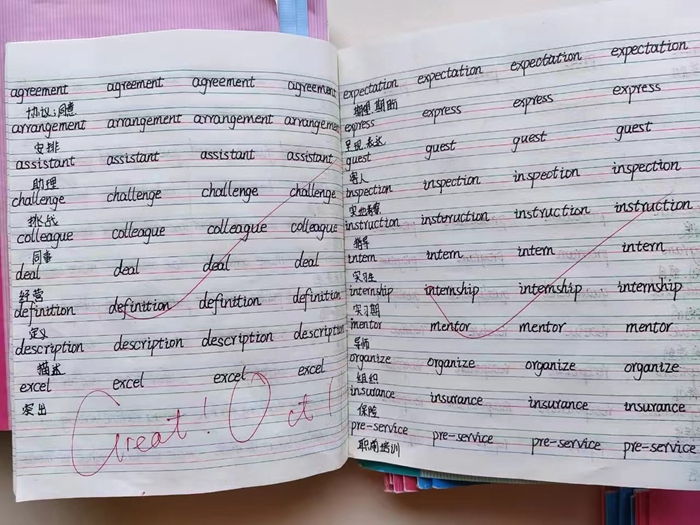 agreement agreement agreement agreement
协议;同意
arrangement arrangement arrangement arrangement
安排
assistant assistant assistant assistant
助理
challenge challenge challenge challenge
挑战
colleague colleague colleague colleague
同事
deal deal deal deal
经营
definition definition definition definition
定义
description description description description
描述
excel excel excel excel
突出
Great!
expectation expectation expectation expectation
期望
express express express express
表达
guest guest guest guest
客人
inspection inspection inspection inspection
instruction instruction instruction instruction
指导
intern intern intern intern
实习生
internship internship internship internship
实习期
mentor mentor mentor mentor
导师
organize organize organize organize
组织
insurance insurance insurance insurance
保险
pre-service pre-service pre-service pre-service
职前培训